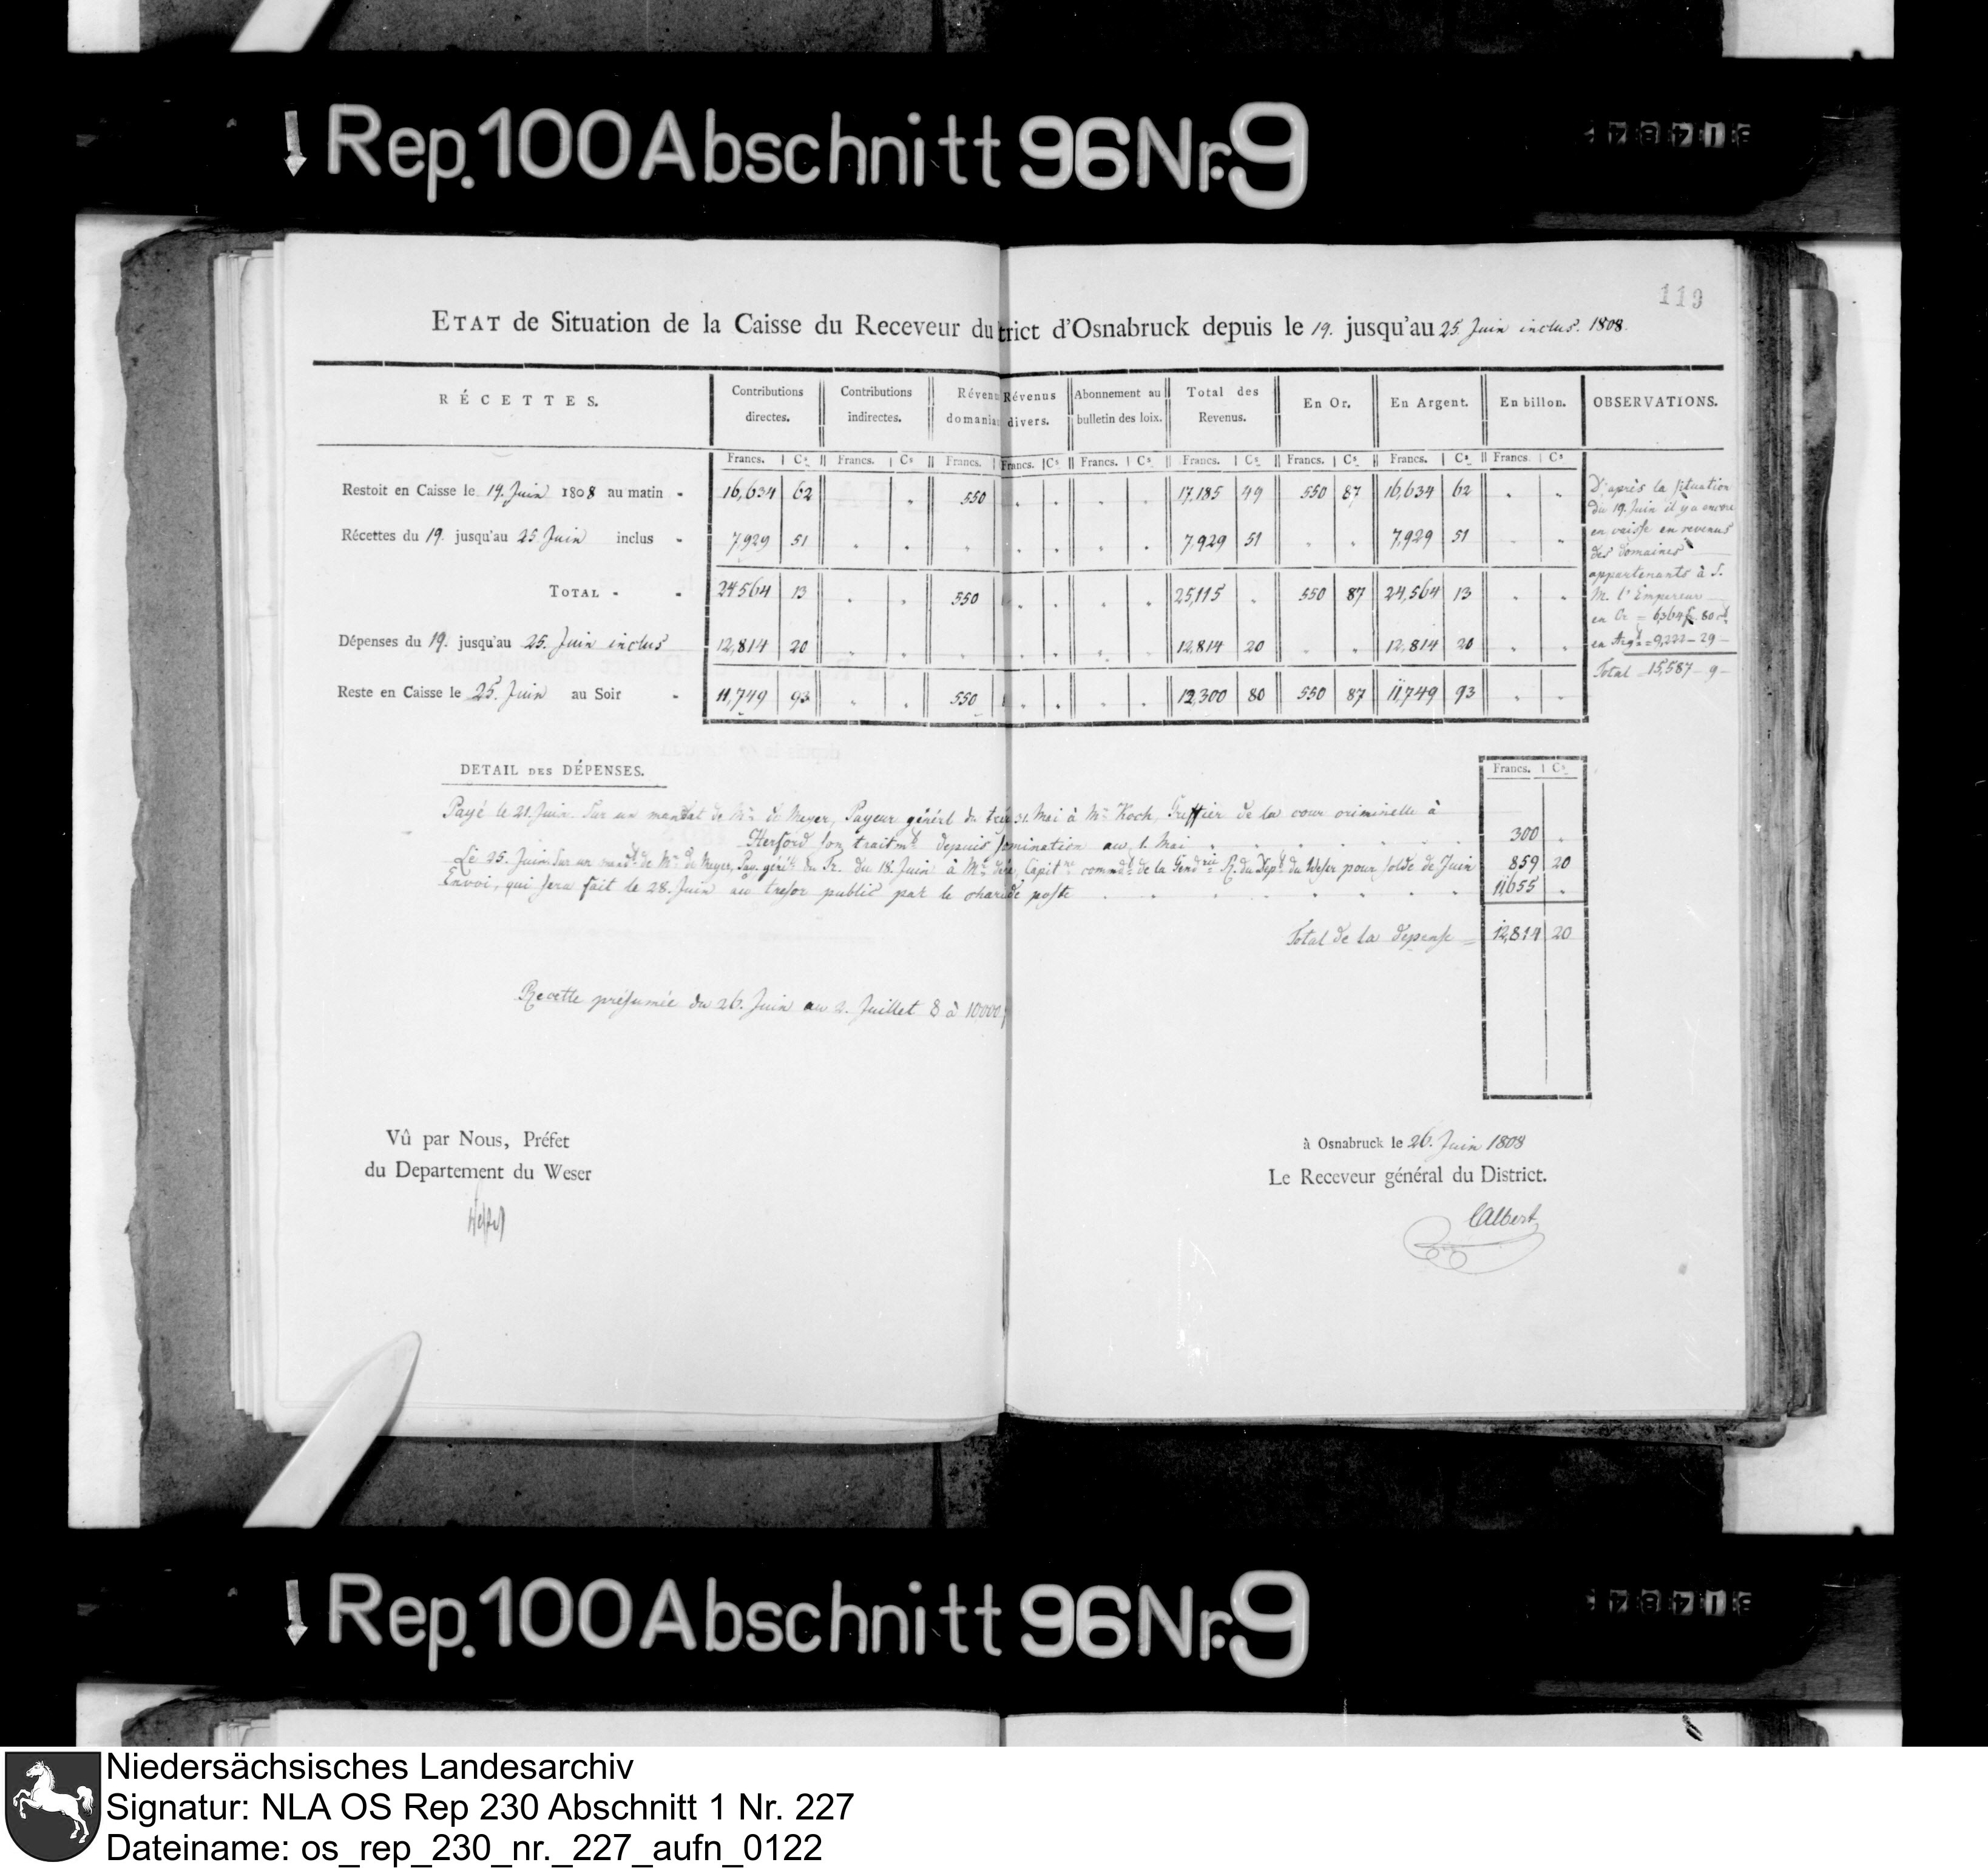 Rep. 100 Abschnitt 96 Nr. 9
119
ETAT de Situation de la Caisse du Receveur du trict d'Osnabruck depuis le 19. jusqu'au 25. Juin inclus. 1808.
RÉCETTES. Contributions directes. Contributions indirectes. Révenu domaniau Révenus divers. Abonnement au bulletin des loix. Total des Revenus. En Or. En Argent. En billon. OBSERVATIONS.
Francs. Cs. Francs. Cs Francs. Francs. Cs Francs. Cs Francs. Cs. Francs. Cs. Francs. Cs. Francs. Cs
Restoit en Caisse le 19. Juin 1808 au matin 16,634 62 550 17,185 49 550 87 16,634 62
Récettes du 19. jusqu'au 25. Juin inclus 7,929 51 7,929 51 7,929 51
TOTAL 24,564 13 550 25,115 . 550 87 24,564 13
Dépenses du 19. jusqu'au 25. Juin inclus 12,814 20 12,814 20 12,814 20
Reste en Caisse le 25. Juin au Soir 11,749 93 550 12,300 80 550 87 11,749 93
D'après la situation
du 19. Juin il y a encore
en caisse en revenus
des domaines
appartenants à S.
M. l'Empereur
en Or = 6,364 f. 80 cs
en Argt = 9,222 - 29 -
Total 15,587 - 9 -
DETAIL DES DÉPENSES.
Francs. Cs
Payé le 21. Juin sur un mandat de Mr. de Meyer, Payeur générl du 31. Mai à Mr. Koch, Greffier de la cour criminelle à
Herford son traitmt depuis au 1. Mai 300 .
Le 25. Juin sur un mandt de Mr. de Meyer, Pay. génél du Tr. du 18. Juin à Mr. Capitne commdt de la Gendrie R. du Dept du Weser pour solde de Juin 859 20
Envoi, qui sera fait le 28. Juin au tresor public par le de poste 11,655 .
Total de la depense = 12,814 20
Recette présumée du 26. Juin au 2. Juillet 8 à 10,000 f
Vû par Nous, Préfet
du Departement du Weser
à Osnabruck le 26. Juin 1808
Le Receveur général du District.
Rep. 100 Abschnitt 96 Nr. 9
Niedersächsisches Landesarchiv
Signatur: NLA OS Rep 230 Abschnitt 1 Nr. 227
Dateiname: os_rep_230_nr._227_aufn_0122